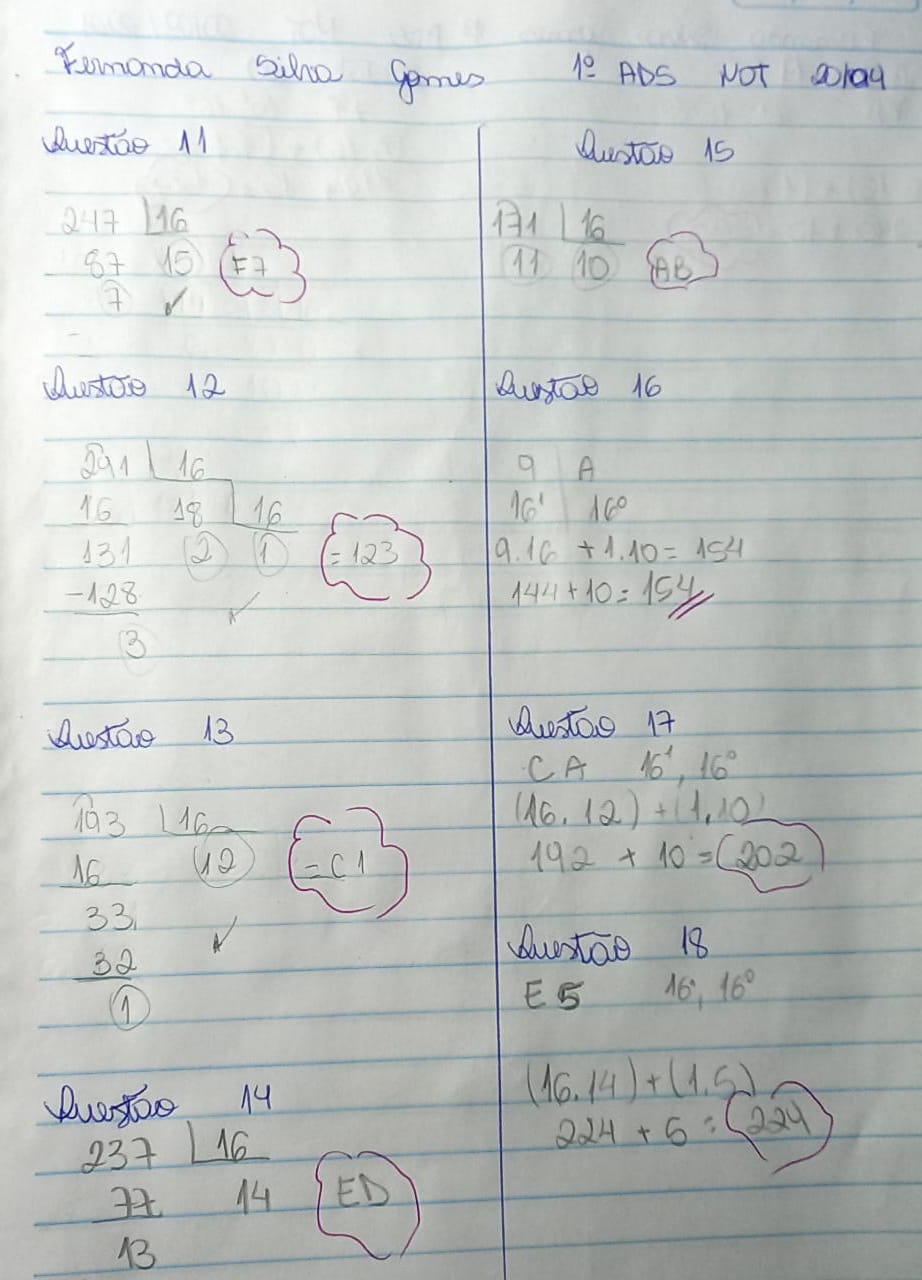 Fernanda Silva Gomes 1º ADS NOT 20/04
Questão 11
247 | 16
87 15 F7
7 ✓
Questão 12
291 | 16
16 18 | 16
131 2 1 = 123
-128 ✓
3
Questão 13
193 | 16
16 12 = C1
33
32 ✓
1
Questão 14
237 | 16
77 14 ED
13
Questão 15
171 | 16
11 10 AB
Questão 16
9 A
16¹ 16⁰
9.16 + 1.10 = 154
144 + 10 = 154
Questão 17
CA 16¹, 16⁰
(16.12) + (1.10)
192 + 10 = 202
Questão 18
E5 16¹, 16⁰
(16.14) + (1.5)
224 + 5 = 229